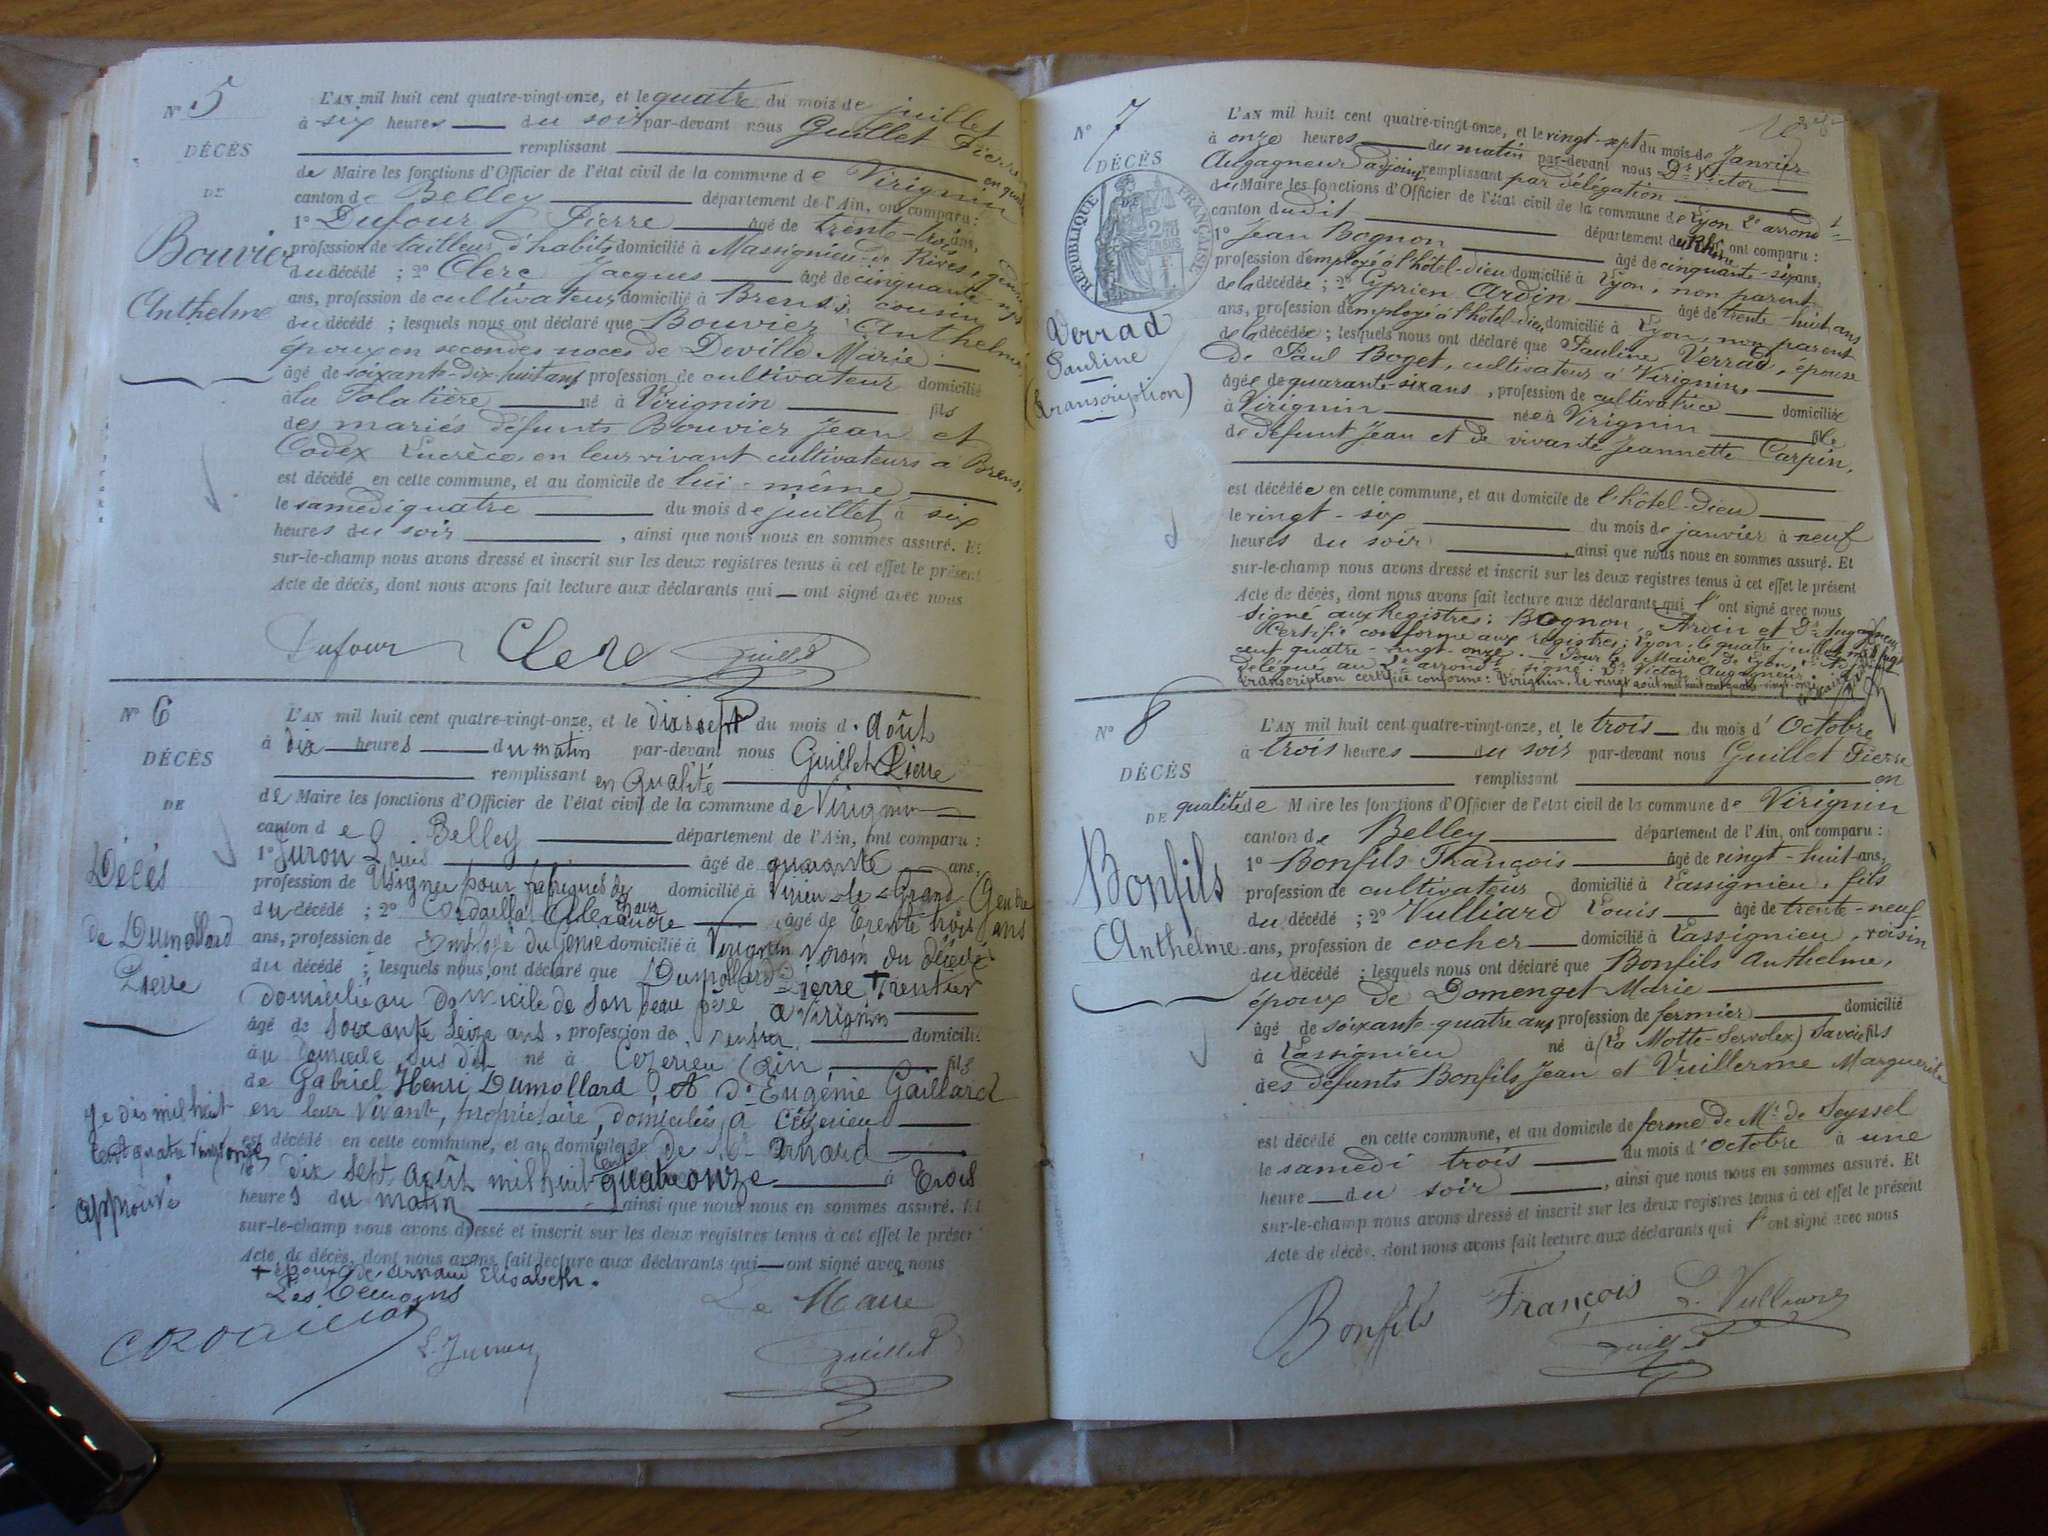 N° 5
DÉCÈS
DE
Bouvier
Anthelme
L'AN mil huit cent quatre-vingt-onze, et le quatre du mois de juillet
à six heures du soir par-devant nous Guillet Pierre
remplissant en qualité
de Maire les fonctions d'Officier de l'état civil de la commune de Virignin
canton de Belley département de l'Ain, ont comparu :
1° Dufour Pierre âgé de trente-trois ans,
profession de tailleur d'habits domicilié à Massignieu-de Rives, gendre
du décédé ; 2° Clerc Jacques âgé de cinquante-
ans, profession de cultivateur domicilié à Brens, cousin
du décédé ; lesquels nous ont déclaré que Bouvier Anthelme,
époux en secondes noces de Deville Marie
âgé de soixante-dix-huit ans profession de cultivateur domicilié
à La Tolatière né à Virignin fils
des mariés défunts Bouvier Jean et
Codex Lucrèce en leur vivant cultivateurs à Brens,
est décédé en cette commune, et au domicile de lui-même
le samedi quatre du mois de juillet à six
heures du soir, ainsi que nous nous en sommes assuré. Et
sur-le-champ nous avons dressé et inscrit sur les deux registres tenus à cet effet le présent
Acte de décès, dont nous avons fait lecture aux déclarants qui ont signé avec nous
Dufour Clerc Guillet
N° 6
DÉCÈS
DE
Décès
de Dumollard
Pierre
L'AN mil huit cent quatre-vingt-onze, et le dix sept du mois d'Août
à dix heures du matin par-devant nous Guillet Pierre
remplissant en qualité
de Maire les fonctions d'Officier de l'état civil de la commune de Virignin
canton de Belley département de l'Ain, ont comparu :
1° Juron Louis âgé de quarante ans,
profession de pour fabriques de domicilié à Virieu-le-Grand Gendre
du décédé ; 2° Alexandre âgé de trente trois ans
ans, profession de Employé du Génie domicilié à Virignin voisin du décédé
du décédé ; lesquels nous ont déclaré que Dumollard Pierre + rentier
domicilié au domicile de son beau père à Virignin
âgé de soixante seize ans, profession de rentier domicilié
au domicile sus dit né à Cezerieu (Ain fils
de Gabriel Henri Dumollard et D° Eugénie Gaillard
en leur vivant, propriétaire, domiciliés à Cézerieu
est décédé en cette commune, et au domicile de de Arnaud
le dix sept août mil huit cent quatre onze à trois
heures du matin ainsi que nous nous en sommes assuré. Et
sur-le-champ nous avons dressé et inscrit sur les deux registres tenus à cet effet le présent
Acte de décès, dont nous avons fait lecture aux déclarants qui ont signé avec nous
+ époux de Arnaud Elisabeth.
Les témoins
Le Maire
L. Juron
Guillet
Je dis mil huit
cent quatre vingt onze
approuvé
N° 7
DÉCÈS
DE
RÉPUBLIQUE FRANÇAISE
Verrad
Pauline
(transcription)
L'AN mil huit cent quatre-vingt-onze, et le vingt-sept du mois de Janvier
à onze heures du matin par-devant nous Dr Victor
Augagneur adjoint remplissant par délégation
du Maire les fonctions d'Officier de l'état civil de la commune de Lyon 2e arrondt
canton dudit département du Rhône, ont comparu :
1° Jean Bognon âgé de cinquante-six ans,
profession d'employé à l'hôtel-dieu domicilié à Lyon, non parent
de la décédée ; 2° Cyprien Ardin âgé de trente-huit ans
ans, profession d'employé à l'hôtel-dieu domicilié à Lyon, non parent
de la décédée ; lesquels nous ont déclaré que Pauline Verrad, épouse
de Paul Boget, cultivateur à Virignin,
âgée de quarante-six ans, profession de cultivatrice domiciliée
à Virignin née à Virignin fille
de défunt Jean et de vivante Jeannette Carpin,
est décédée en cette commune, et au domicile de l'hôtel-Dieu
le vingt-six du mois de janvier à neuf
heures du soir, ainsi que nous nous en sommes assuré. Et
sur-le-champ nous avons dressé et inscrit sur les deux registres tenus à cet effet le présent
Acte de décès, dont nous avons fait lecture aux déclarants qui l'ont signé avec nous
Signé aux Registres : Bognon, Ardin et Dr Augagneur
Certifié conforme aux registres, Lyon, le quatre juillet mil huit
cent quatre-vingt-onze. Pour le Maire de Lyon,
délégué au 2e arrondt signé : Dr Victor Augagneur
transcription certifiée conforme : Virignin, le vingt août mil huit cent quatre-vingt-onze
N° 8
DÉCÈS
DE
Bonfils
Anthelme
L'AN mil huit cent quatre-vingt-onze, et le trois du mois d'Octobre
à trois heures du soir par-devant nous Guillet Pierre
remplissant en
qualité de Maire les fonctions d'Officier de l'état civil de la commune de Virignin
canton de Belley département de l'Ain, ont comparu :
1° Bonfils François âgé de vingt-huit ans,
profession de cultivateur domicilié à Lassignieu, fils
du décédé ; 2° Vulliard Louis âgé de trente-neuf
ans, profession de cocher domicilié à Lassignieu, voisin
du décédé ; lesquels nous ont déclaré que Bonfils Anthelme,
époux de Domenget Marie
âgé de soixante-quatre ans profession de fermier domicilié
à Lassignieu né à (La Motte-Servolex) Savoie fils
des défunts Bonfils Jean et Vuillerme Marguerite
est décédé en cette commune, et au domicile de ferme de Mr de Seyssel
le samedi trois du mois d'Octobre à une
heure du soir, ainsi que nous nous en sommes assuré. Et
sur-le-champ nous avons dressé et inscrit sur les deux registres tenus à cet effet le présent
Acte de décès, dont nous avons fait lecture aux déclarants qui l'ont signé avec nous
Bonfils François L. Vulliard
Guillet